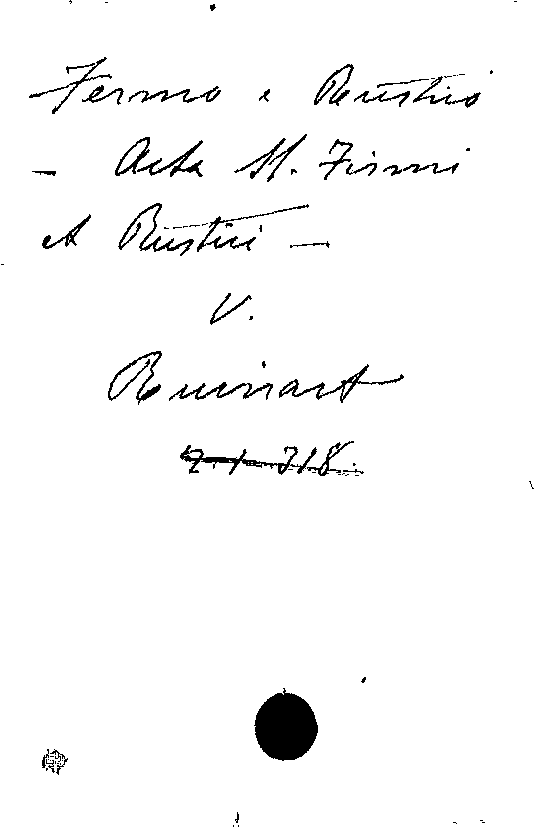 Fermo e Rustico
— Acta SS. Firmi
et Rustici —
V.
Ruinart
2. 1. 318.